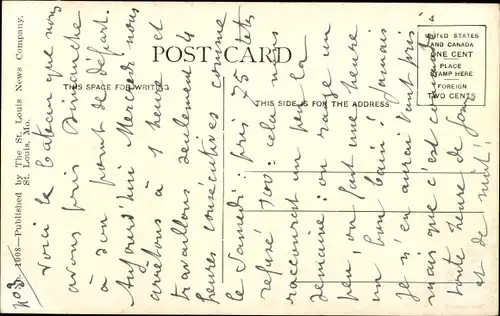 POST CARD
THIS SPACE FOR WRITING
THIS SIDE IS FOR THE ADDRESS
UNITED STATES
AND CANADA
ONE CENT
PLACE
STAMP HERE
FOREIGN
TWO CENTS
No. 1608—Published by The St. Louis News Company,
St. Louis, Mo.
no 3
Voici le bateau que nous
avons pris Dimanche
à son point de départ.
Aujourd'hui Mercredi nous
arretons à 1 heure et
travaillons seulement 4
heures consécutives comme
le Samedi: pris 75
refusé 100: cela nous
raccourcit un peu la
semaine: on range un
peu, on fait une heure
un bon bain! Jamais
Je n'en aurai tant pris
mais que c'est commode à
toute heure de jour
et de nuit!